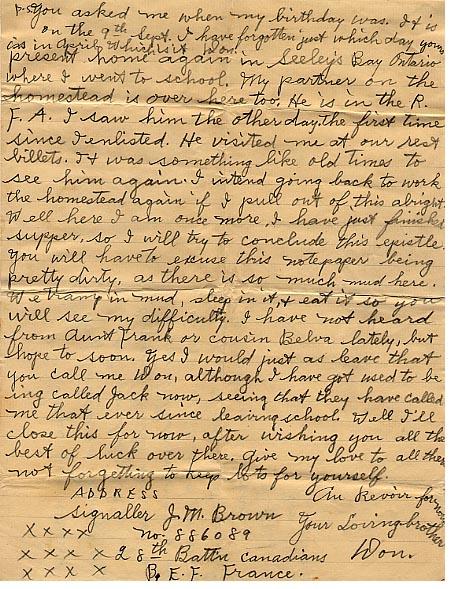 P.S. You asked me when my birthday was. It is
on the 9th Sept. I have forgotten just which day yours
is in April. Which is it Won.
present home again in Seeley's Bay Ontario
where I went to school. My partner on the
homestead is over here too. He is in the R.
F. A. I saw him the other day, the first time
since I enlisted. He visited me at our rest
billets. It was something like old times to
see him again. I intend going back to work
the homestead again if I pull out of this alright.
Well here I am once more, I have just finished
supper, so I will try to conclude this epistle.
You will have to excuse this notepaper being
pretty dirty, as there is so much mud here.
We tramp in mud, sleep in it, & eat it so you
will see my difficulty. I have not heard
from Aunt Frank or cousin Belva lately, but
hope to soon. Yes I would just as leave that
you call me Won, although I have got used to be
ing called Jack now, seeing that they have called
me that ever since leaving school. Well I'll
close this for now, after wishing you all the
best of luck over there. Give my love to all there
not forgetting to keep lots for yourself.
Au Revoir for now
Your Loving brother
Won.
ADDRESS
Signaller J. M. Brown
x x x x No, 886089
x x x x x 28th Battn Canadians
x x x x B. E. F. France.